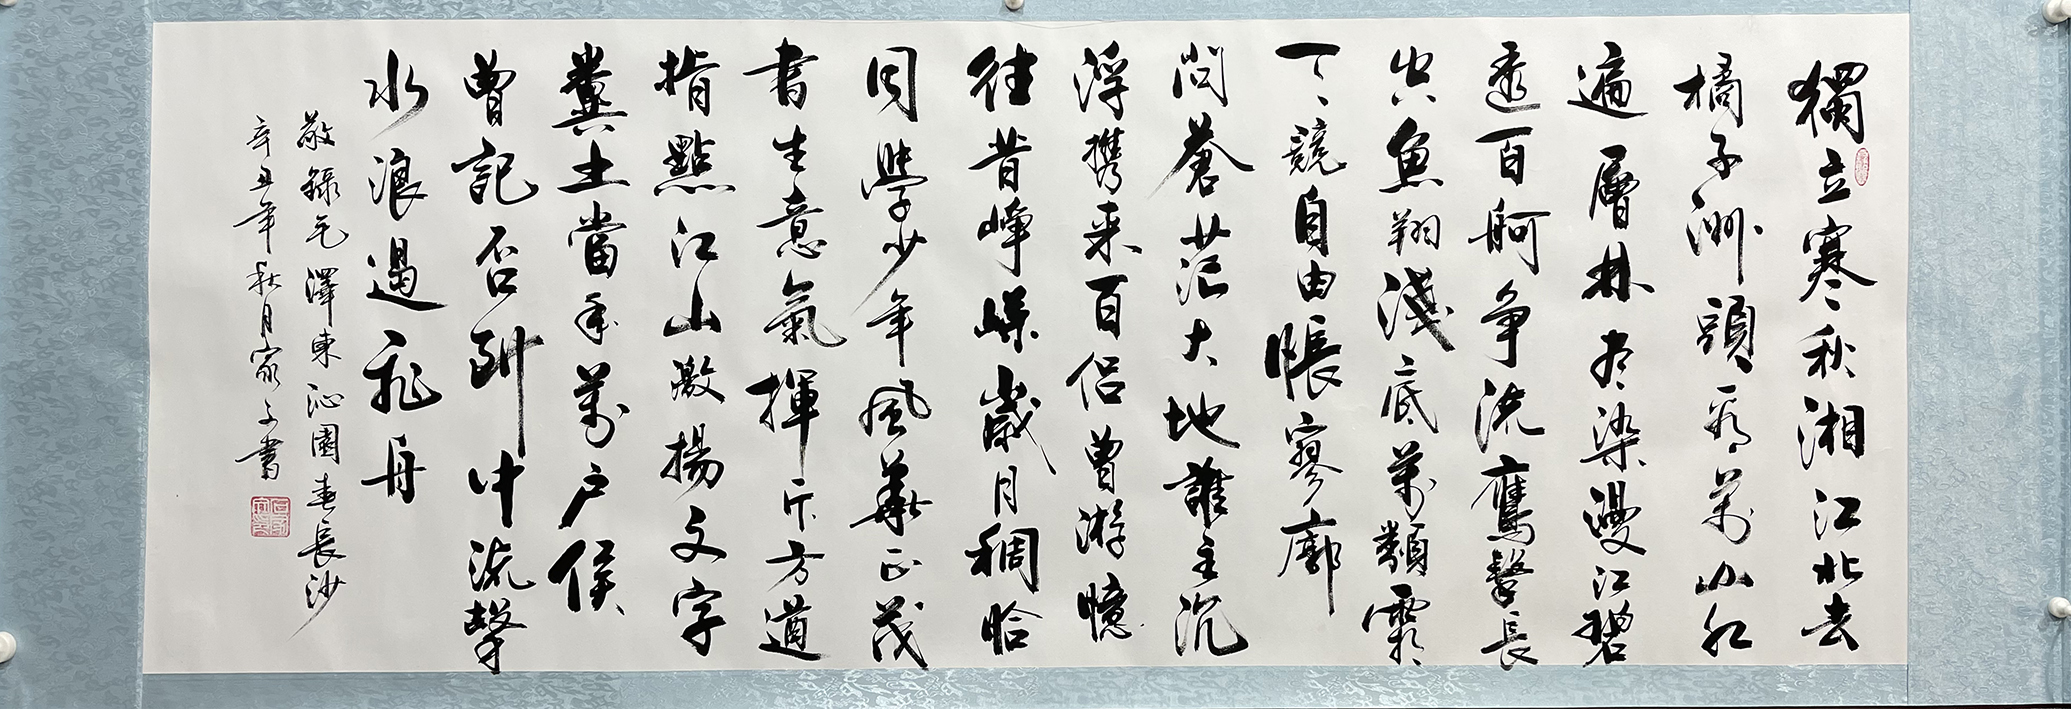 獨立寒秋湘江北去
橘子洲頭看萬山紅
遍層林尽染漫江碧
透百舸争流鷹擊長
空魚翔淺底萬類霜
天競自由悵寥廓
問蒼茫大地誰主沉
浮携来百侣曾游憶
往昔峥嵘歲月稠恰
同學少年風華正茂
書生意氣揮斥方遒
指點江山激揚文字
糞土當年萬户侯
曾記否到中流擊
水浪遏飛舟
敬録毛澤東沁園春長沙
辛丑年秋月家文書